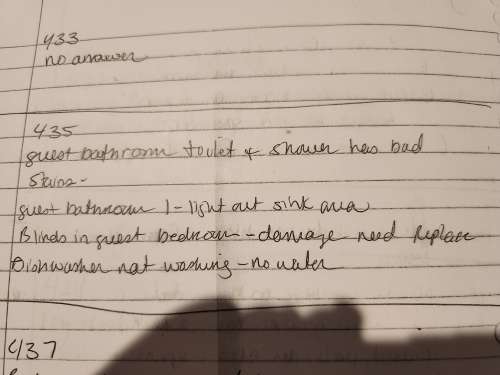 433
no answer
435
guest bathroom toilet & shower has bad
Stains -
guest bathroom 1 - light out sink area
Blinds in guest bedroom - damage need Replace
Dishwasher not washing - no water
437